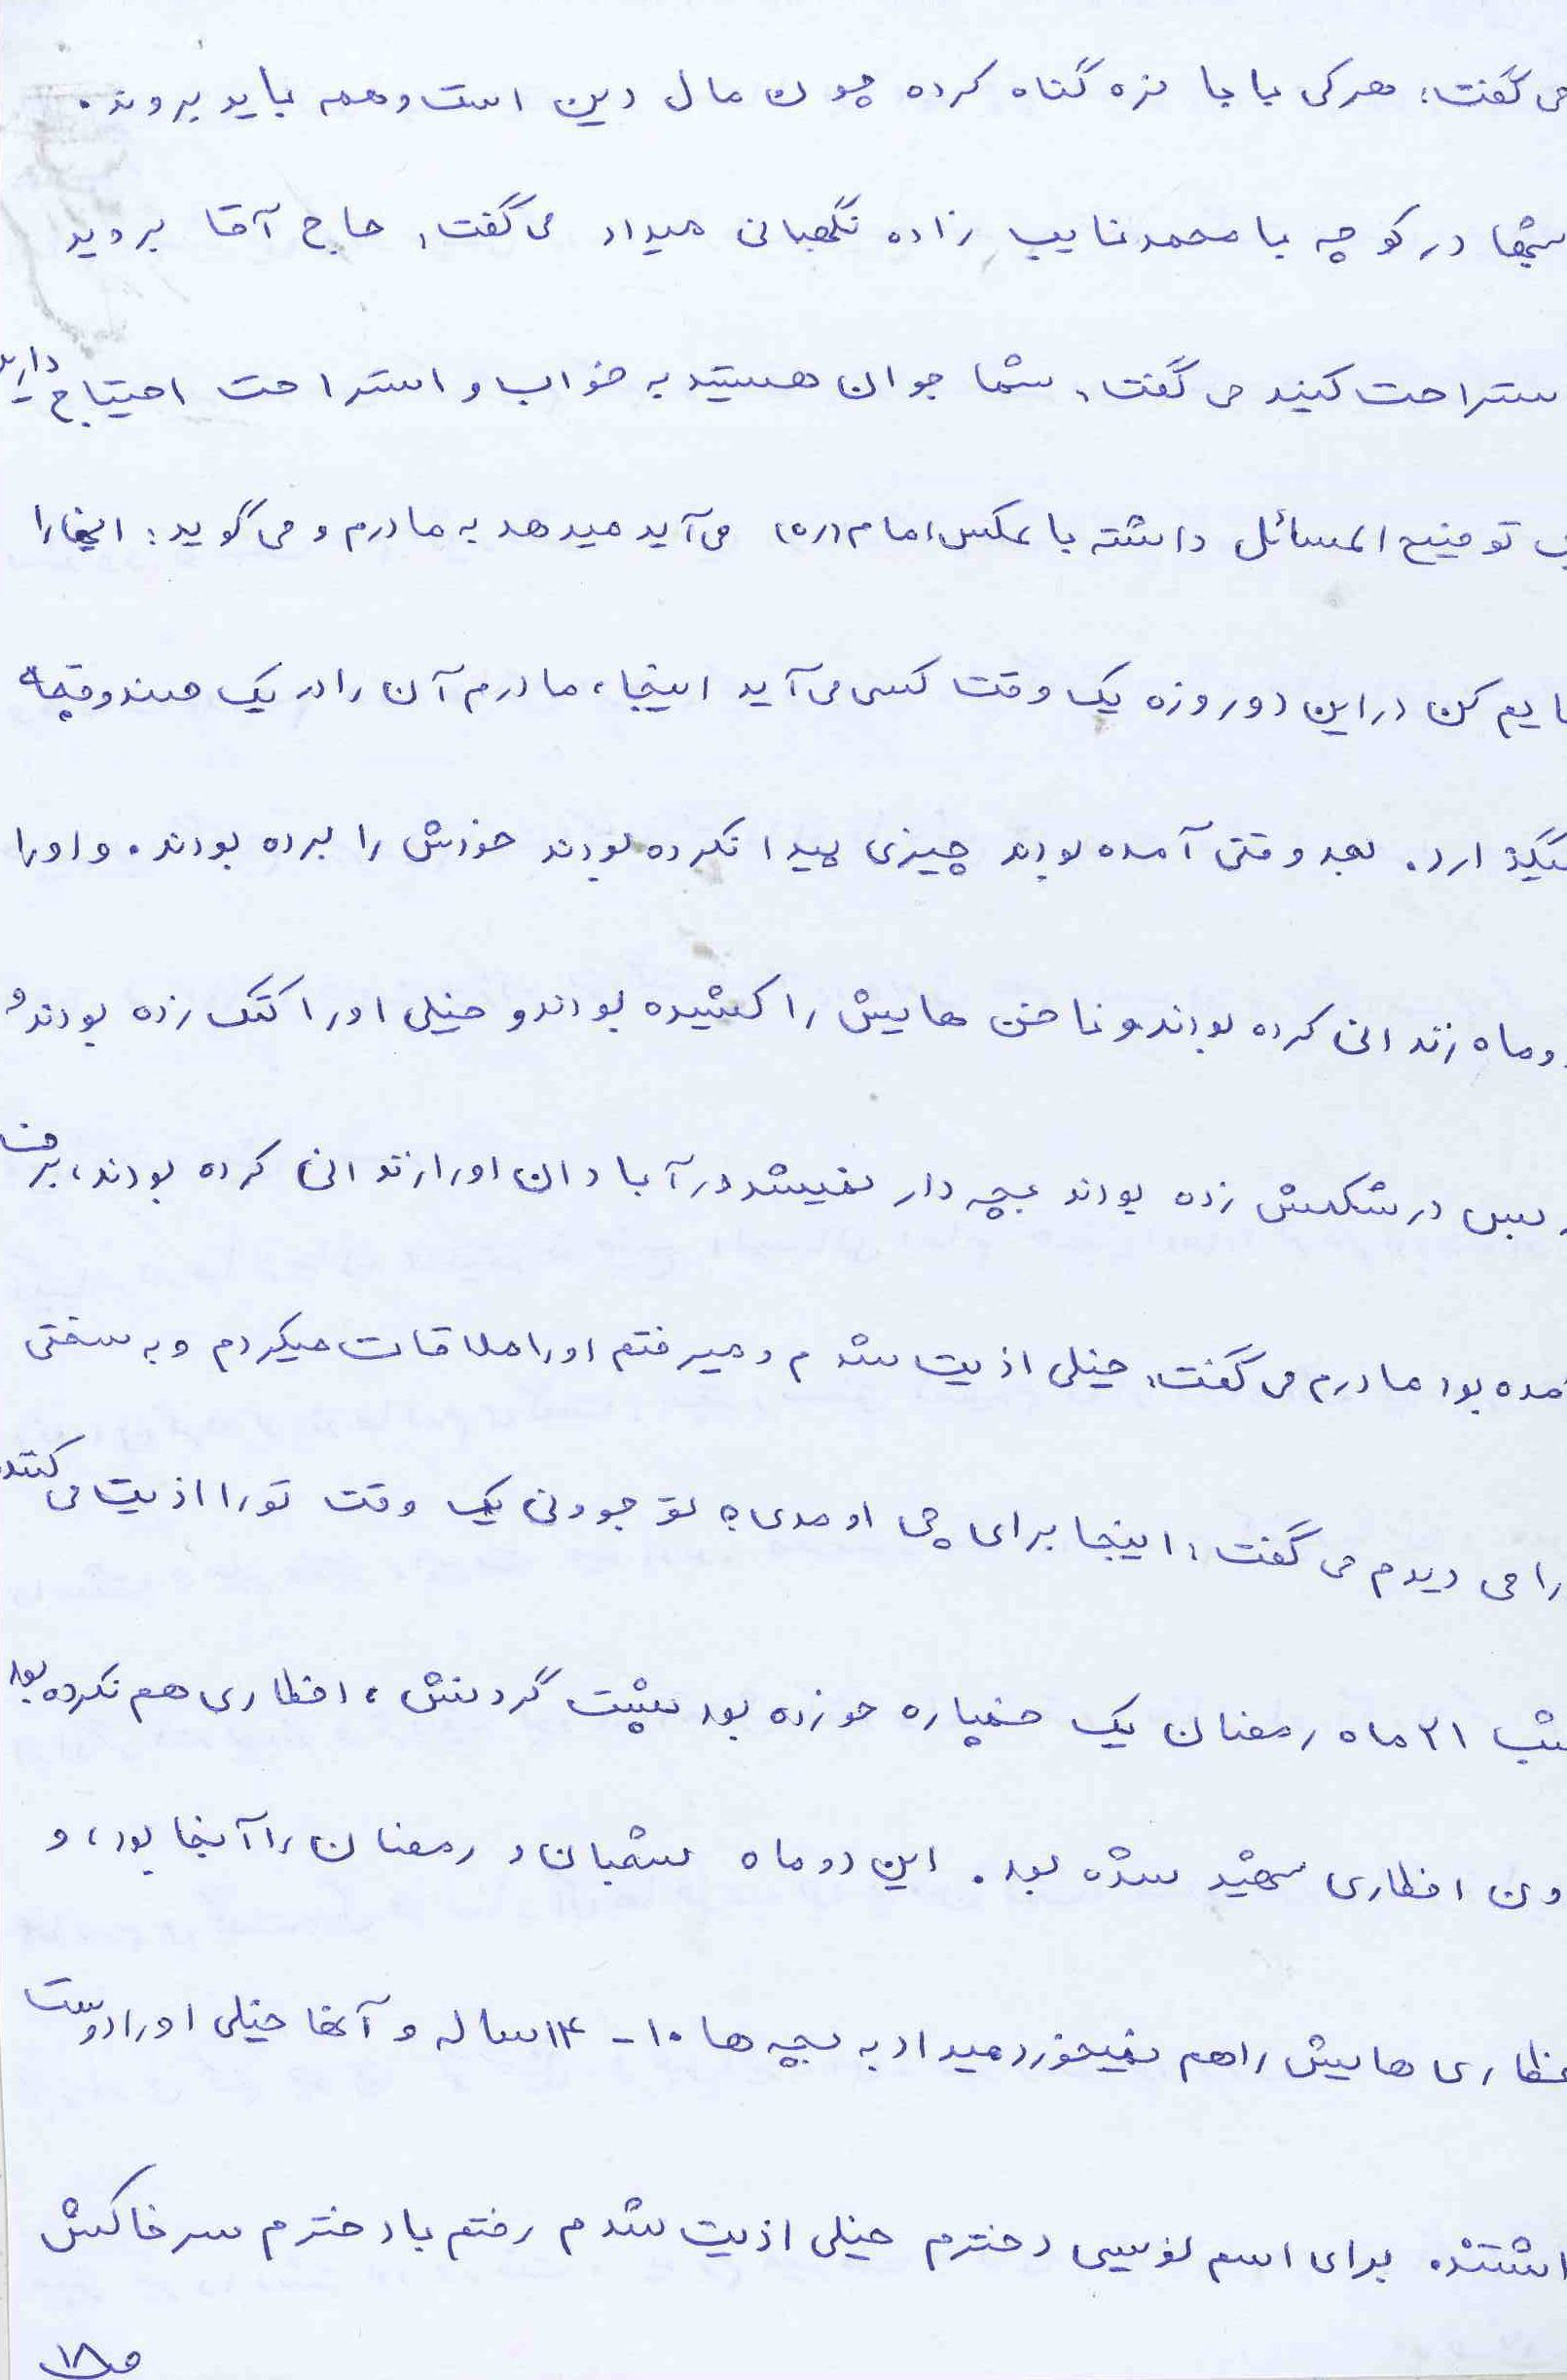 می گفت: هرکی بابا نره گناه کرده چون مال دین است و همه باید بروند.
شبها در کوچه با محمد نایب زاده نگهبانی میداد می گفت: حاج آقا بروید
ستراحت کنید می گفت: شما جوان هستید به خواب و استراحت احتیاج دارید
توضیح المسائل داشته با عکس امام (ره) می آید میدهد به مادرم و می گوید: اینها را
ایم کن در این دو روزه یک وقت کسی می آید اینجا، مادرم آن را در یک صندوقچه
میگذارد. بعد وقتی آمده بودند چیزی پیدا نکرده بودند خودش را برده بودند. و او را
دو ماه زندانی کرده بودند و ناخن هایش را کشیده بودند و خیلی او را کتک زده بودند و
بس در شکمش زده بودند بچه دار نمیشد در آبادان او را زندانی کرده بودند، برف
آمده بود مادرم می گفت: خیلی اذیت شدم و میرفتم او را ملاقات میکردم و به سختی
را می دیدم می گفت: اینجا برای چی اومدی؟ تو جوونی یک وقت تو را اذیت می کنند
شب ۲۱ ماه رمضان یک خمپاره خورده بود پشت گردنش، افطاری هم نکرده بود
ون افطاری شهید شده بود. این دو ماه شعبان و رمضان را آنجا بود، و
فطاری هایش را هم نمیخورد میداد به بچه ها ۱۰-۱۴ ساله و آنها خیلی او را دوست
اشتند. برای اسم نویسی دخترم خیلی اذیت شدم رفتم با دخترم سر خاکش
ص۱۸